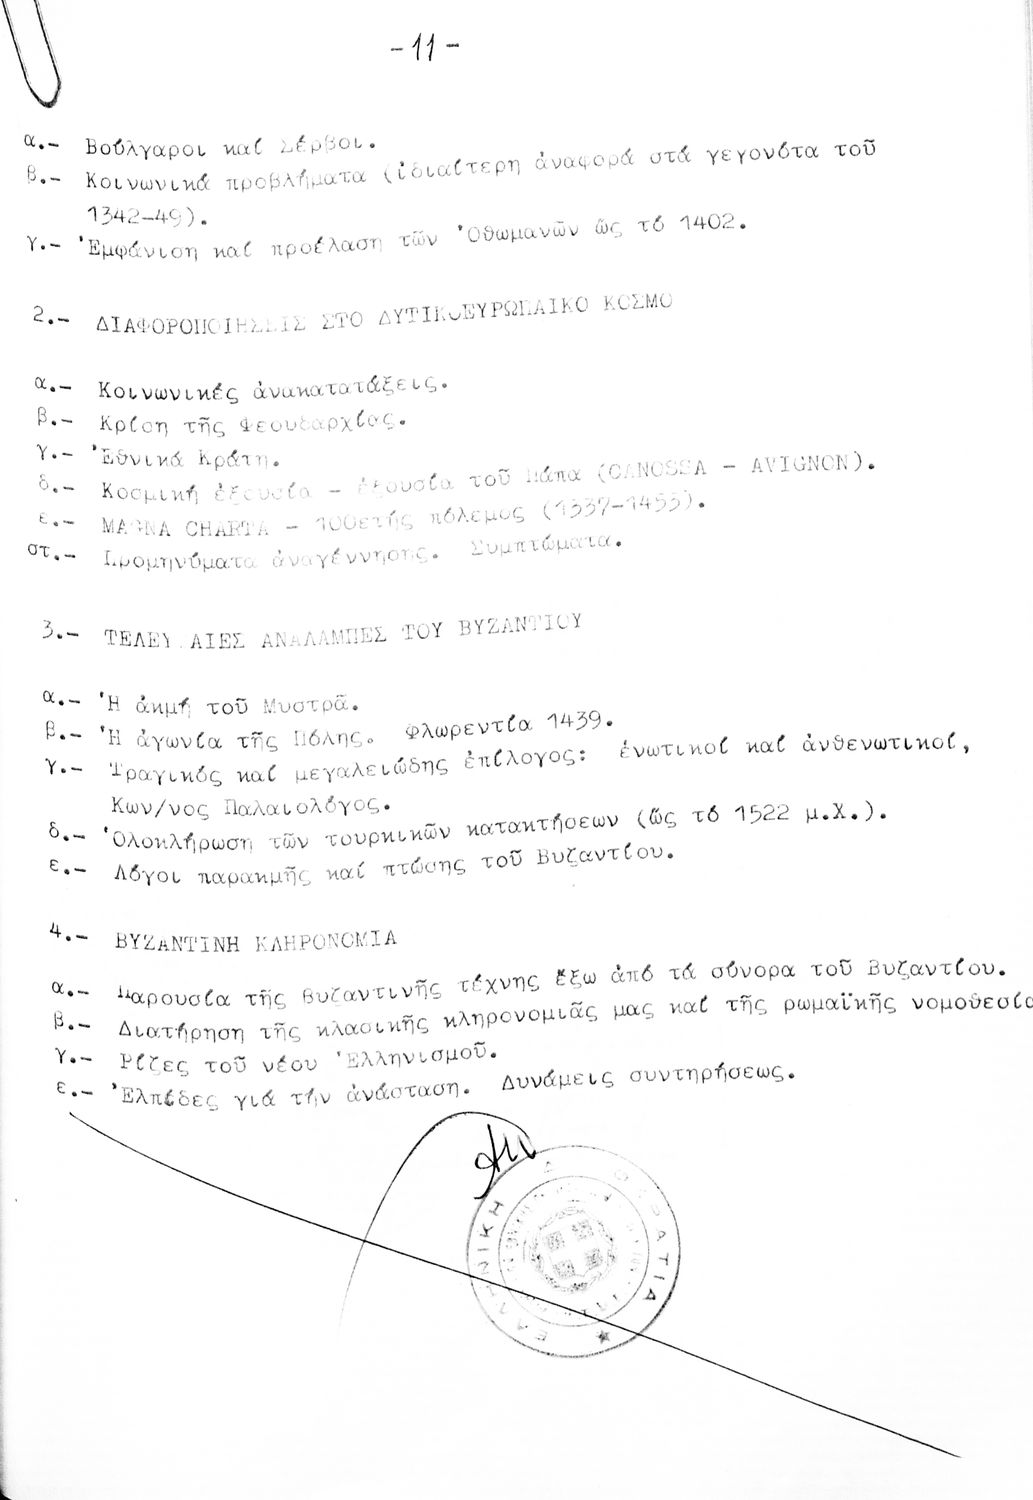 -11-
α.- Βούλγαροι καί Σέρβοι.
β.- Κοινωνικά προβλήματα (ἰδιαίτερη ἀναφορά στά γεγονότα τοῦ
1342-49).
γ.- Ἐμφάνιση καί προέλαση τῶν Ὀθωμανῶν ὥς τό 1402.
2.- ΔΙΑΦΟΡΟΠΟΙΗΣΕΙΣ ΣΤΟ ΔΥΤΙΚΟΕΥΡΩΠΑΙΚΟ ΚΟΣΜΟ
α.- Κοινωνικές ἀνακατατάξεις.
β.- Κρίση τῆς Φεουδαρχίας.
γ.- Ἐθνικά Κράτη.
δ.- Κοσμική ἐξουσία - ἐξουσία τοῦ Πάπα (CANOSSA - AVIGNON).
ε.- MAGNA CHARTA - 100ετής πόλεμος (1337-1453).
στ.- Προμηνύματα ἀναγέννησης. Συμπτώματα.
3.- ΤΕΛΕΥΤΑΙΕΣ ΑΝΑΛΑΜΠΕΣ ΤΟΥ ΒΥΖΑΝΤΙΟΥ
α.- Ἡ ἀκμή τοῦ Μυστρᾶ.
β.- Ἡ ἀγωνία τῆς Πόλης. Φλωρεντία 1439.
γ.- Τραγικός καί μεγαλειώδης ἐπίλογος: ἑνωτικοί καί ἀνθενωτικοί,
Κων/νος Παλαιολόγος.
δ.- Ὁλοκλήρωση τῶν τουρκικῶν κατακτήσεων (ὥς τό 1522 μ.Χ.).
ε.- Λόγοι παρακμῆς καί πτώσης τοῦ Βυζαντίου.
4.- ΒΥΖΑΝΤΙΝΗ ΚΛΗΡΟΝΟΜΙΑ
α.- Παρουσία τῆς βυζαντινῆς τέχνης ἔξω ἀπό τά σύνορα τοῦ Βυζαντίου.
β.- Διατήρηση τῆς κλασικῆς κληρονομιᾶς μας καί τῆς ρωμαϊκῆς νομοθεσία
γ.- Ρίζες τοῦ νέου Ἑλληνισμοῦ.
ε.- Ἐλπίδες γιά τήν ἀνάσταση. Δυνάμεις συντηρήσεως.
ΕΛΛΗΝΙΚΗ